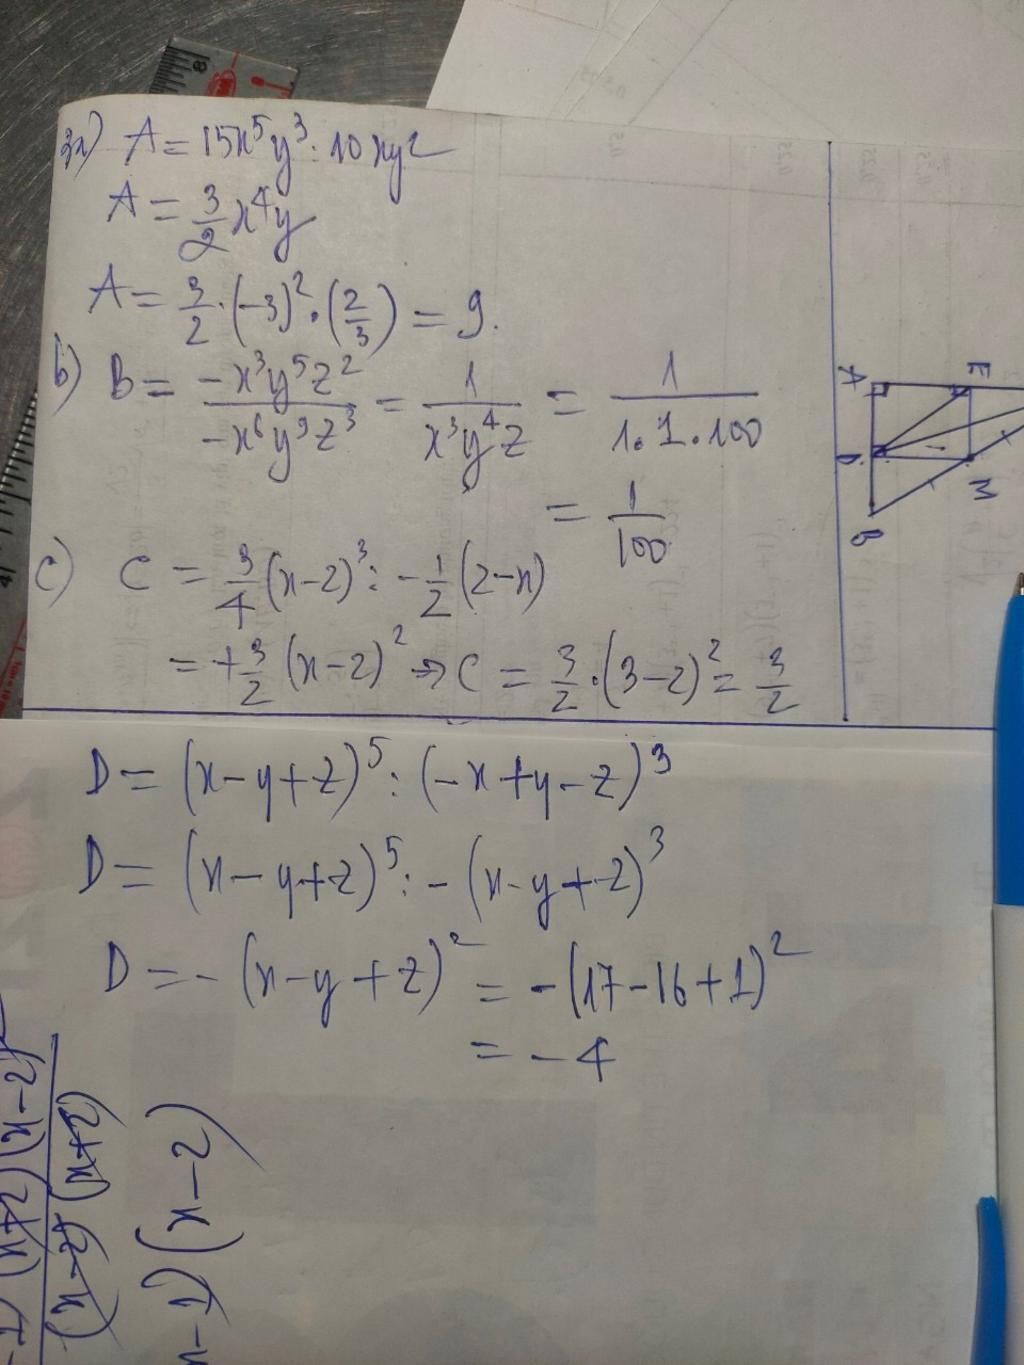 3a) A = 15x⁵y³ : 10xy²
A = 3/2 x⁴y
A = 3/2 · (-3)² · (2/3) = 9.
b) B = -x³y⁵z² / -x⁶y⁹z³ = 1 / x³y⁴z = 1 / 1.1.100
= 1/100
c) C = 3/4 (x-2)³ : -1/2 (2-x)
= +3/2 (x-2)² → C = 3/2 · (3-2)² = 3/2
A E
D M
B
D = (x-y+z)⁵ : (-x+y-z)³
D = (x-y+z)⁵ : -(x-y+z)³
D = -(x-y+z)² = -(17-16+1)²
= -4
(x+2)(x-2)
(x-2)(x+2)
(x-2)